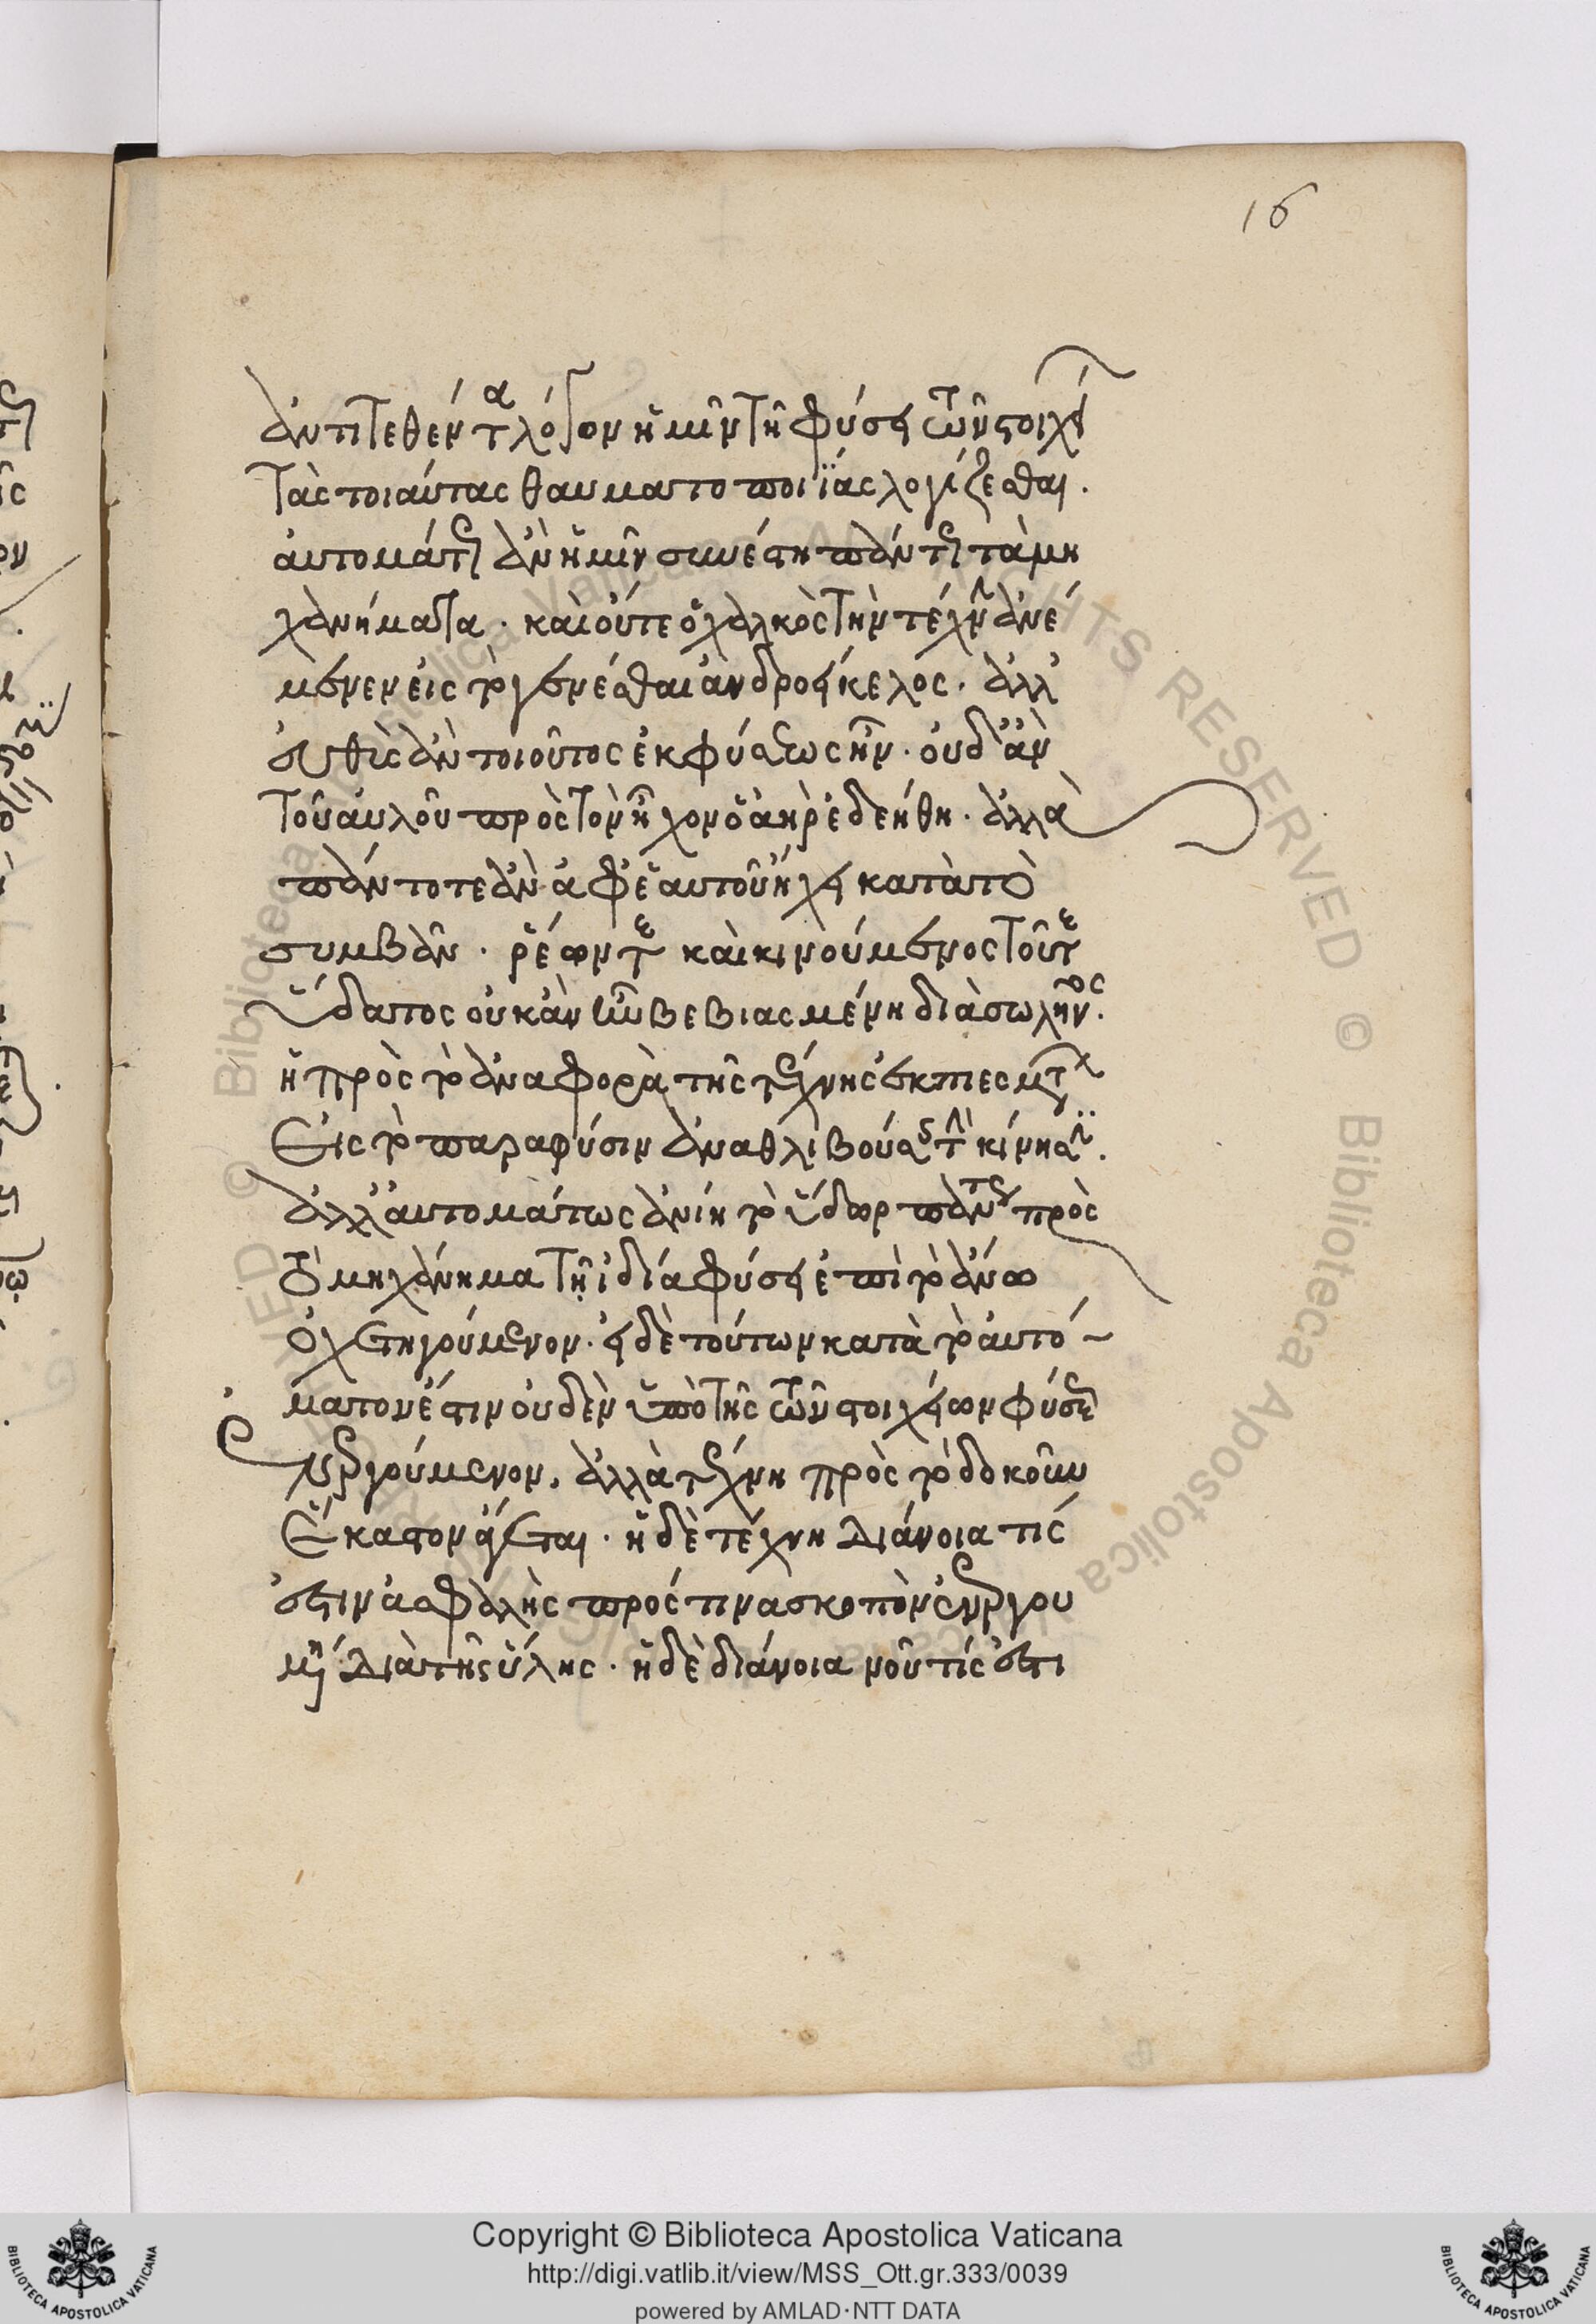 16
ἀντιτεθέντα λόγον ἡμῖν τῇ φύσει τῶν στοιχεί
τὰς τοιαύτας θαυματοποιΐας λογίζεσθαι.
αὐτομάτως ἂν ἡμῖν συνέστη πάντως τὰ μη
χανήματα. καὶ οὔτε ὁ χαλκὸς τὴν τέχνην ἀνέ
μενεν εἰς τὸ γενέσθαι ἀνδροείκελος. ἀλλ'
εὐθὺς ἂν τοιοῦτος ἐκ φύσεως ἦν. οὐδ' ἂν
τοῦ αὐλοῦ πρὸς τὸν ἦχον ὁ ἀὴρ ἐδεήθη. ἀλλὰ
πάντοτε ἂν ἀφ' ἑαυτοῦ ἤχει κατὰ τὸ
συμβὰν ῥέων τε καὶ κινούμενος τοῦ τε
ὕδατος οὐκ ἂν ἦν βεβιασμένη διὰ σωλῆνος.
ἡ πρὸς τὸ ἄνω φορὰ τῆς τέχνης ἐκπιεσμῷ
εἰς τὸ παρὰ φύσιν ἀναθλιβούσης τὴν κίνησιν.
ἀλλ' αὐτομάτως ἀνίη τὸ ὕδωρ πάντως πρὸς
τὸ μηχάνημα τῇ ἰδίᾳ φύσει ἐπὶ τὸ ἄνω
ὀχετηγούμενον. εἰ δὲ τούτων κατὰ τὸ αὐτό-
ματόν ἐστιν οὐδὲν ὑπὸ τῆς τῶν στοιχείων φύσεως
ἐνεργούμενον, ἀλλὰ τέχνῃ πρὸς τὸ δοκοῦν
ἕκαστον ἄγεται. ἡ δὲ τέχνη διάνοιά τίς
ἐστιν ἀσφαλὴς πρός τινα σκοπὸν ἐνεργου
μένη διὰ τῆς ὕλης. ἡ δὲ διάνοια νοῦ τίς ἐστι
Copyright © Biblioteca Apostolica Vaticana
http://digi.vatlib.it/view/MSS_Ott.gr.333/0039
powered by AMLAD·NTT DATA